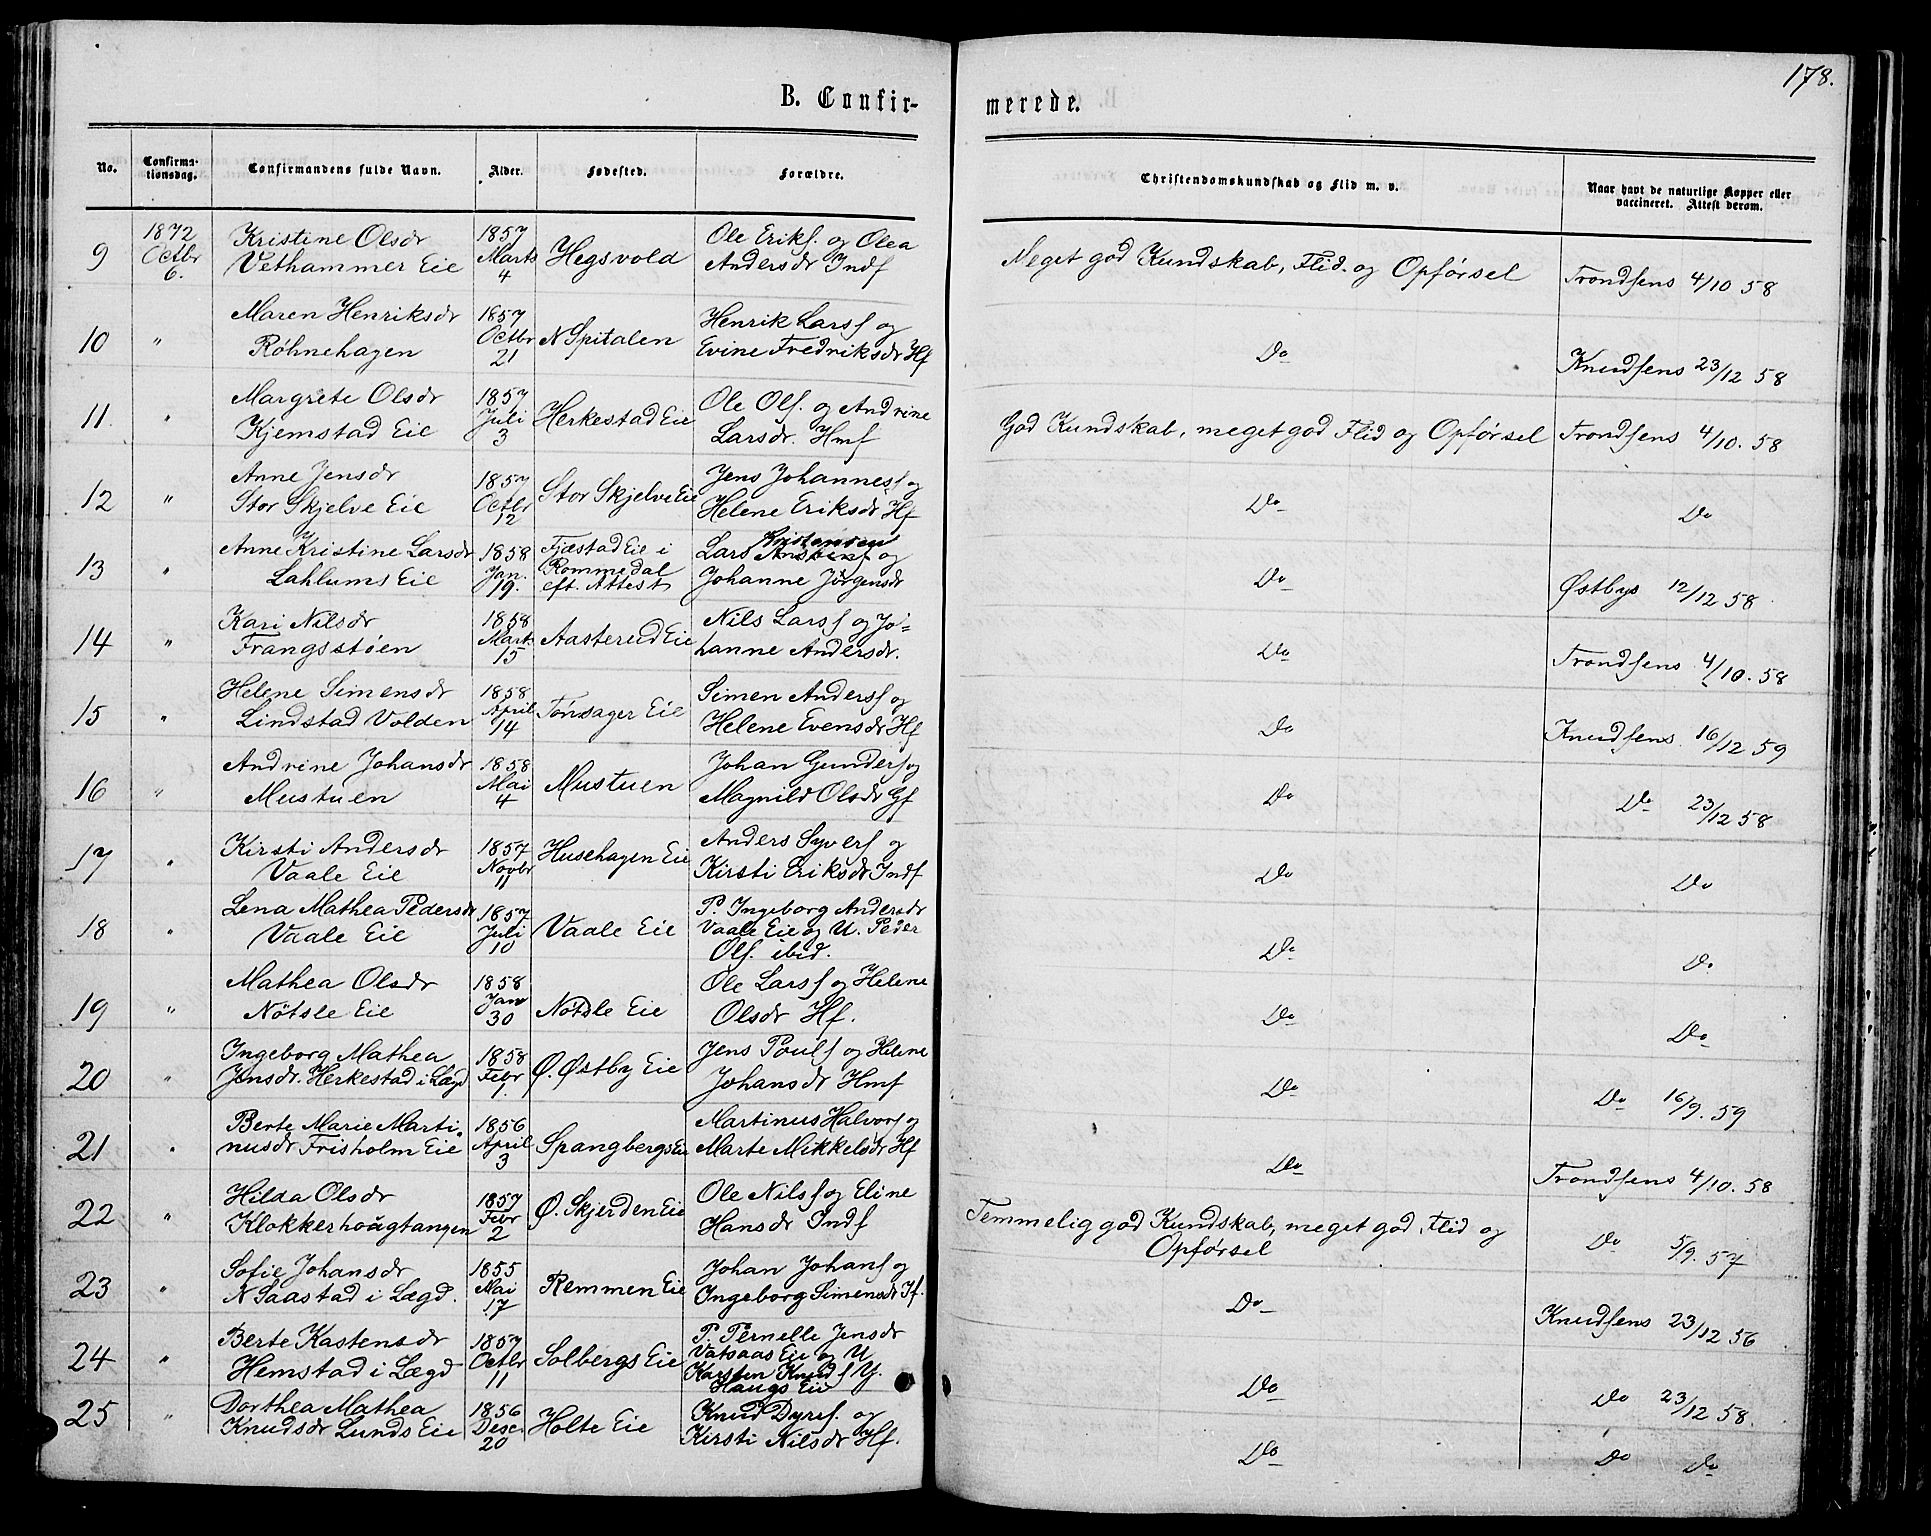 178.
B. Confirmerede.
No. Confirmationsdag. Confirmandens fulde Navn. Alder. Fødested. Forældre. Christendomskundskab og Flid m. v. Naar havt de naturlige Kopper eller vaccineret. Attest derom.
9 1872 Octbr 6. Kristine Olsdr Vethammer Eie 1857 Marts 4 Hegsvold Ole Eriks. og Olea Andersdr Indf Meget god Kundskab, Flid og Opførsel Trondsens 4/10 58
10 " Maren Henriksdr Røhnehagen 1857 Octbr 21 N Spitalen Henrik Larss og Evine Fredriksdr Hf Do Knudsens 23/12 58
11. " Margrete Olsdr Kjemstad Eie 1857 Juli 3 Herkestad Eie Ole Ols. og Andrine Larsdr. Hmf God Kundskab, meget god Flid og Opførsel Trondsens 4/10. 58
12 " Anne Jensdr Stor Skjelve Eie 1857 Octbr 12 Stor Skjelve Eie Jens Johanness og Helene Eriksdr Hf Do Do
13 " Anne Kristine Larsdr Lahlums Eie 1858 Jan. 19. Tjæstad Eie i Rommedal eft. Attest Lars Kristensen og Johanne Jørgensdr Do Østbys 12/12 58.
14 " Kari Nilsdr Frangsstøen 1858 Marts 15 Aasterud Eie Nils Larss og Johanne Andersdr. Do Trondsens 4/10. 58
15 " Helene Simensdr Lindstad Volden 1858 April 14 Tønsager Eie Simen Anderss og Helene Evensdr Hf Do Knudsens 16/12 59
16 " Andrine Johansdr Mustuen 1858 Mai 4 Mustuen Johan Gunders og Magnild Olsdr Gf Do Do 23/12 58
17 " Kirsti Andersdr Vaale Eie 1857 Novbr 11 Husehagen Eie Anders Syvers og Kirsti Eriksdr Indf Do Do
18 " Lena Mathea Pedersdr Vaale Eie 1857 Juli 10 Vaale Eie P. Ingeborg Andersdr Vaale Eie og U. Peder Ols. ibid. Do Do
19 " Mathea Olsdr Nötsle Eie 1858 Janr 30 Nötsle Eie Ole Larss og Helene Olsdr Hf. Do Do
20 " Ingeborg Mathea Jensdr. Herkestad i Lægd 1858 Febr 1. Ø. Østby Eie Jens Pouls og Helene Johansdr Hmf Do Do 16/9. 59
21 " Berte Marie Martinusdr Frisholm Eie 1856 April 3 Spangbergs Eie Martinus Halvors og Marte Mikkelsdr Hf Do Trondsens 4/10. 58
22 " Hilda Olsdr Klokkerhougtangen 1857 Febr 2 Ø. Skjerden Eie Ole Nilss og Eline Hansdr Indf Temmelig god Kundskab, meget god Flid og Opførsel Do 5/9. 57
23 " Sofie Johansdr N Saastad i Lægd. 1855 Mai 17 Remmen Eie Johan Johans og Ingeborg Simensdr If. Do Knudsens 23/12 56
24 " Berte Kastensdr Hemstad i Lægd 1857 Octbr 11 Solbergs Eie P. Pernelle Jensdr Vatsaas Eie og U Karsten Knuds Y. Haugs Eie Do Do 23/12 58.
25 " Dorthea Mathea Knudsdr Lunds Eie 1856 Desc. 20 Holte Eie Knud Dyres. og Kirsti Nilsdr Hf. Do Do Do